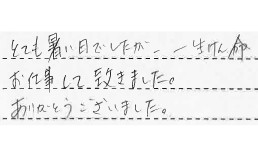 とても暑い日でしたが、一生けん命
お仕事して頂きました。
ありがとうございました。